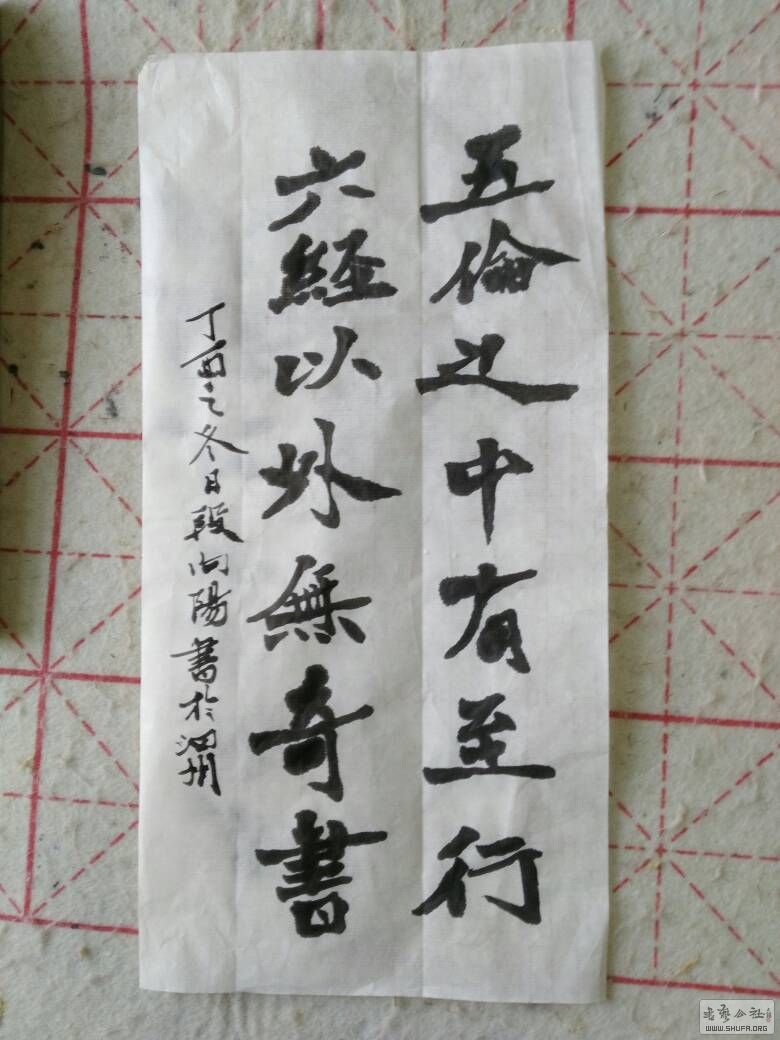 五倫之中有至行
六經以外無奇書
丁酉之冬日段向陽書於泗州
書藝公社
WWW.SHUFA.ORG